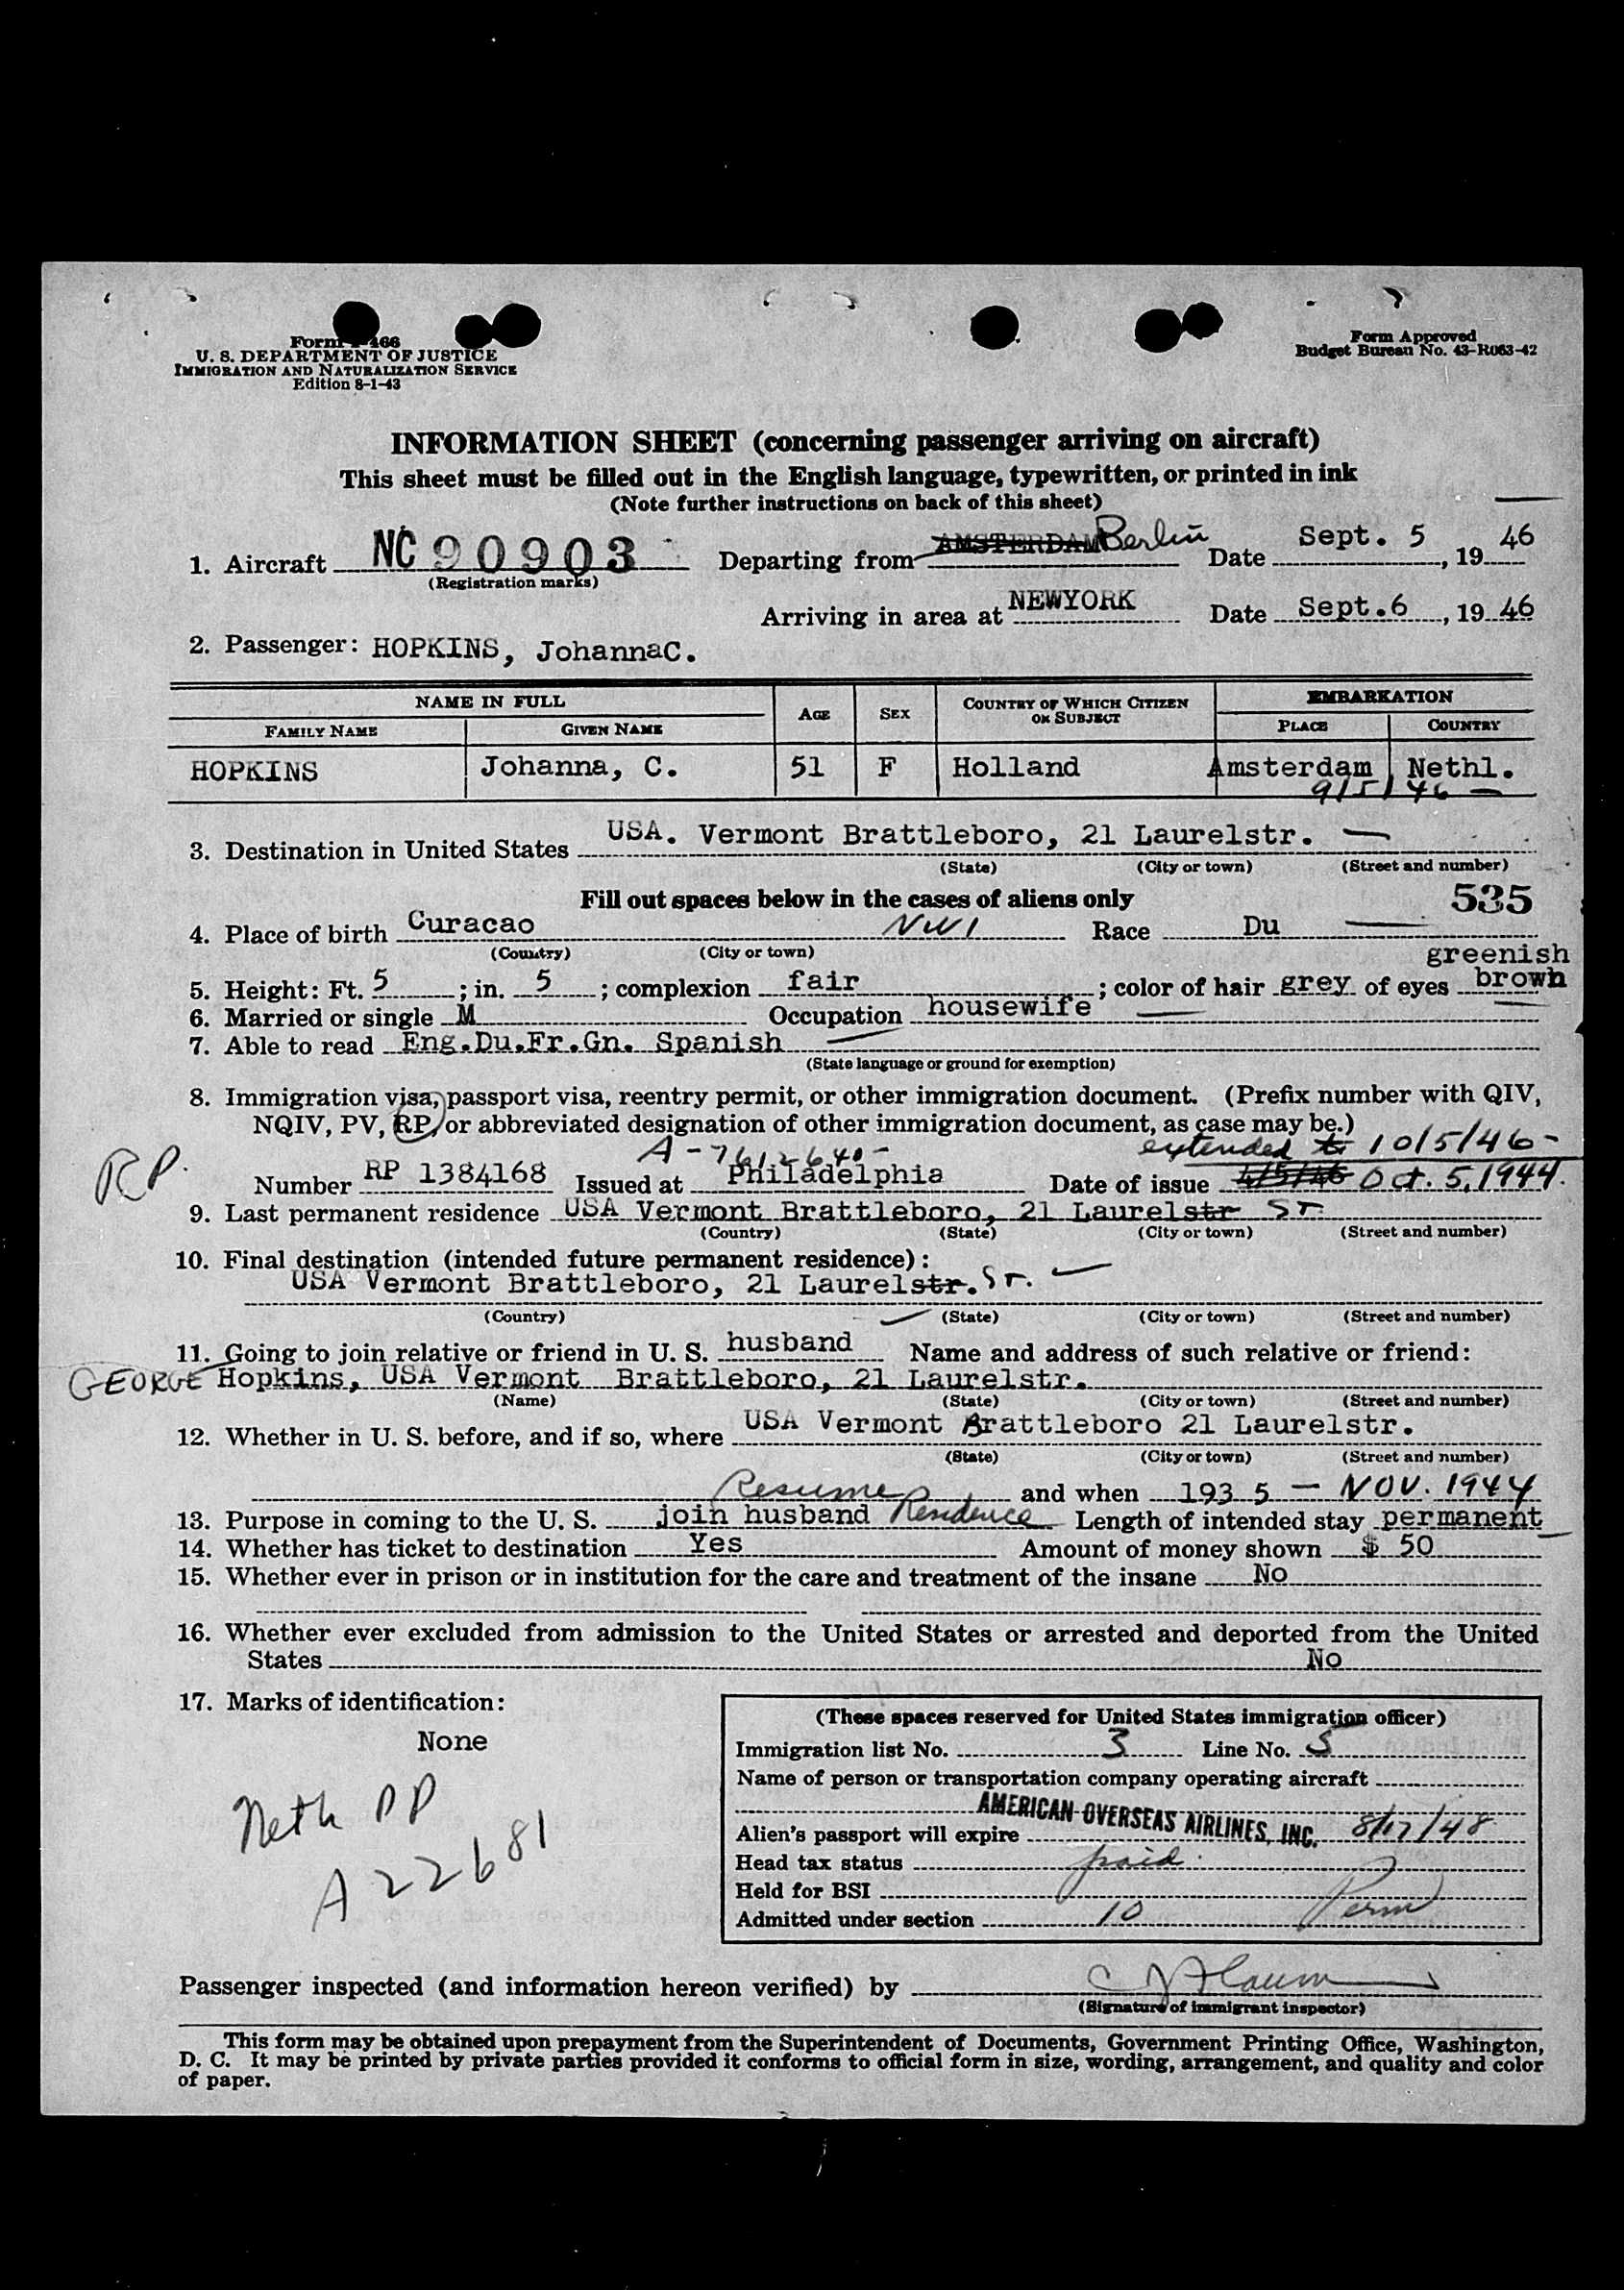 Form 466
U. S. DEPARTMENT OF JUSTICE
IMMIGRATION AND NATURALIZATION SERVICE
Edition 8-1-43
Form Approved
Budget Bureau No. 43-R063-42
INFORMATION SHEET (concerning passenger arriving on aircraft)
This sheet must be filled out in the English language, typewritten, or printed in ink
(Note further instructions on back of this sheet)
1. Aircraft NC 90903 Departing from AMSTERDAM Berlin Date Sept. 5, 19 46
(Registration marks)
Arriving in area at NEWYORK Date Sept.6, 19 46
2. Passenger: HOPKINS, JohannaC.
NAME IN FULL AGE SEX COUNTRY OF WHICH CITIZEN OR SUBJECT EMBARKATION
FAMILY NAME GIVEN NAME PLACE COUNTRY
HOPKINS Johanna, C. 51 F Holland Amsterdam Nethl.
9/5/46 —
3. Destination in United States USA. Vermont Brattleboro, 21 Laurelstr. —
(State) (City or town) (Street and number)
Fill out spaces below in the cases of aliens only 535
4. Place of birth Curacao NWI Race Du
(Country) (City or town)
5. Height: Ft. 5; in. 5; complexion fair; color of hair grey of eyes greenish brown
6. Married or single M Occupation housewife
7. Able to read Eng.Du.Fr.Gn. Spanish
(State language or ground for exemption)
8. Immigration visa, passport visa, reentry permit, or other immigration document. (Prefix number with QIV,
NQIV, PV, RP, or abbreviated designation of other immigration document, as case may be.)
RP. A-7612640- extended to 10/5/46-
Number RP 1384168 Issued at Philadelphia Date of issue 4/5/46 Oct. 5, 1944.
9. Last permanent residence USA Vermont Brattleboro, 21 Laurelstr ST
(Country) (State) (City or town) (Street and number)
10. Final destination (intended future permanent residence):
USA Vermont Brattleboro, 21 Laurelstr. ST.
(Country) (State) (City or town) (Street and number)
11. Going to join relative or friend in U. S. husband Name and address of such relative or friend:
GEORGE Hopkins, USA Vermont Brattleboro, 21 Laurelstr.
(Name) (State) (City or town) (Street and number)
12. Whether in U. S. before, and if so, where USA Vermont Brattleboro 21 Laurelstr.
(State) (City or town) (Street and number)
and when 193 5 — NOV. 1944
13. Purpose in coming to the U. S. join husband Resume Residence Length of intended stay permanent
14. Whether has ticket to destination Yes Amount of money shown $ 50
15. Whether ever in prison or in institution for the care and treatment of the insane No
16. Whether ever excluded from admission to the United States or arrested and deported from the United
States No
17. Marks of identification:
None
Neth PP
A 22681
(These spaces reserved for United States immigration officer)
Immigration list No. 3 Line No. 5
Name of person or transportation company operating aircraft
AMERICAN OVERSEAS AIRLINES, INC.
Alien's passport will expire 8/17/48
Head tax status paid.
Held for BSI
Admitted under section 10 Perm
Passenger inspected (and information hereon verified) by
(Signature of immigrant inspector)
This form may be obtained upon prepayment from the Superintendent of Documents, Government Printing Office, Washington,
D. C. It may be printed by private parties provided it conforms to official form in size, wording, arrangement, and quality and color
of paper.